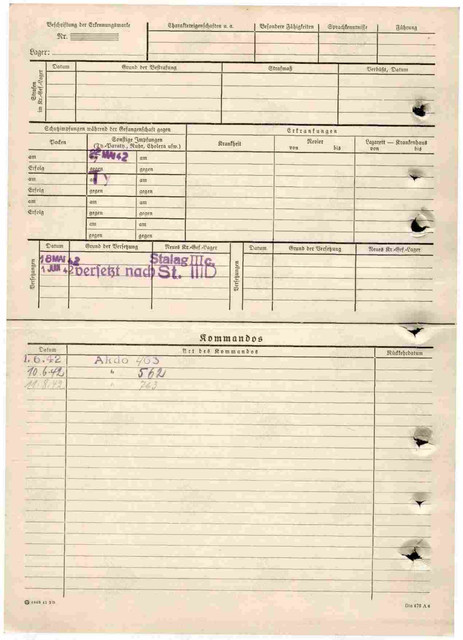 Beschriftung der Erkennungsmarke
Nr.
Lager:
Charaktereigenschaften u. a.
Besondere Fähigkeiten
Sprachkenntnisse
Führung
Strafen im Kr.-Gef.-Lager
Datum
Grund der Bestrafung
Strafmaß
Verbüßt, Datum
Schutzimpfungen während der Gefangenschaft gegen
Erkrankungen
Pocken
Sonstige Impfungen
(Ty.-Paraty., Ruhr, Cholera usw.)
Krankheit
Revier
von bis
Lazarett — Krankenhaus
von bis
am
MAI 42
am
Erfolg
gegen
gegen
am
am
am
Erfolg
gegen
Ty
gegen
am
am
am
Erfolg
gegen
gegen
am
am
gegen
gegen
Versetzungen
Datum
Grund der Versetzung
Neues Kr.-Gef.-Lager
Versetzungen
Datum
Grund der Versetzung
Neues Kr.-Gef.-Lager
18 MAI 42
Stalag III c.
1 JUNI 42
versetzt nach St. III D
Kommandos
Datum
Art des Kommandos
Rückkehrdatum
1.6.42 Akdo 403
10.6.42 " 562
11.8.42 " 763